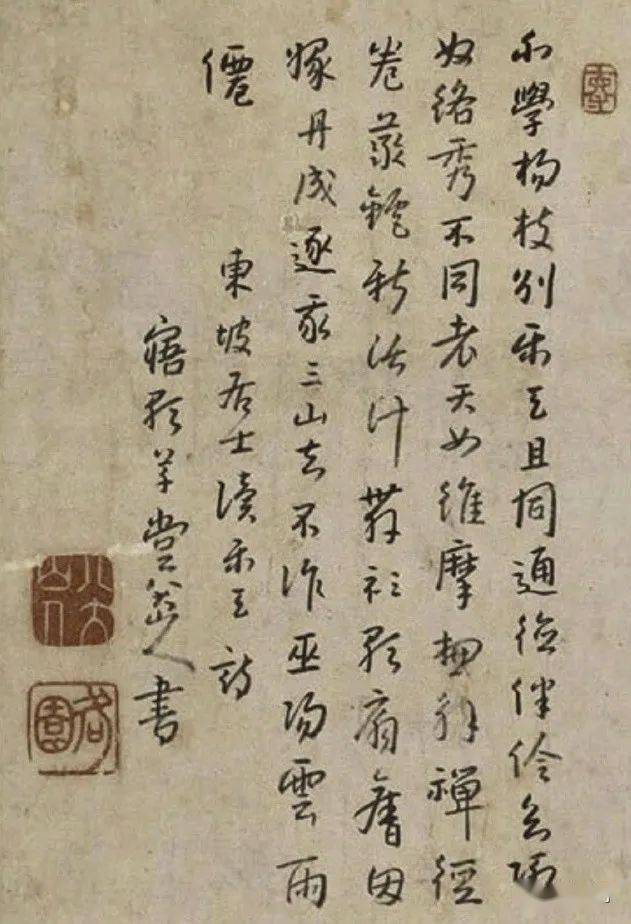 不學楊枝別樂天且同通德伴伶玄阿
奴絡秀不同老天女維摩總解禪經
卷藥鑪新活計舞衫歌扇舊因
緣丹成逐我三山去不作巫陽雲雨
僊
東坡居士讀樂天詩
寤歌草堂八大山人書
八大山人
何園